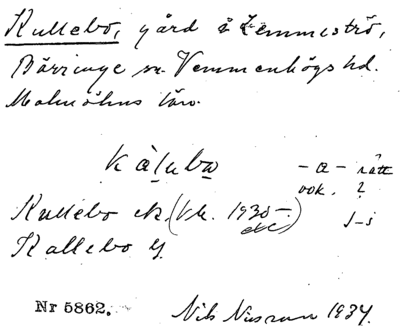 Kullebo, gård i Lemmeströ,
Börringe sn. Vemmenhögs hd.
Malmöhus län.
kàlubω -a- rätt
vok. ?
Kullebo ek. (Vh. 1930-
etc) J-i
Kallebo y.
Nr 5862. Nils Nilsson 1934.